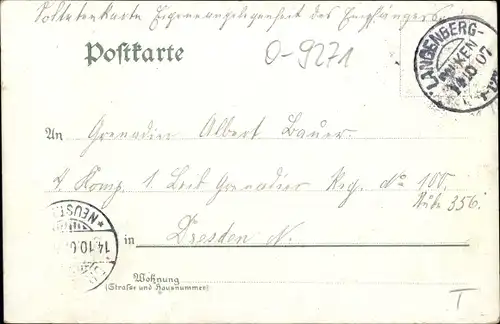 Soldatenkarte Eigene Angelegenheit des Empfängers
Postkarte
O-9271
LANGENBERG-
14.10 07
An Grenadier Albert Bauer.
4 Komp. 1. Leib Grenadier Reg. No 100.
Stube 356.
*NEUST
14.10.0
in Dresden N.
Wohnung
(Straße und Hausnummer)
T